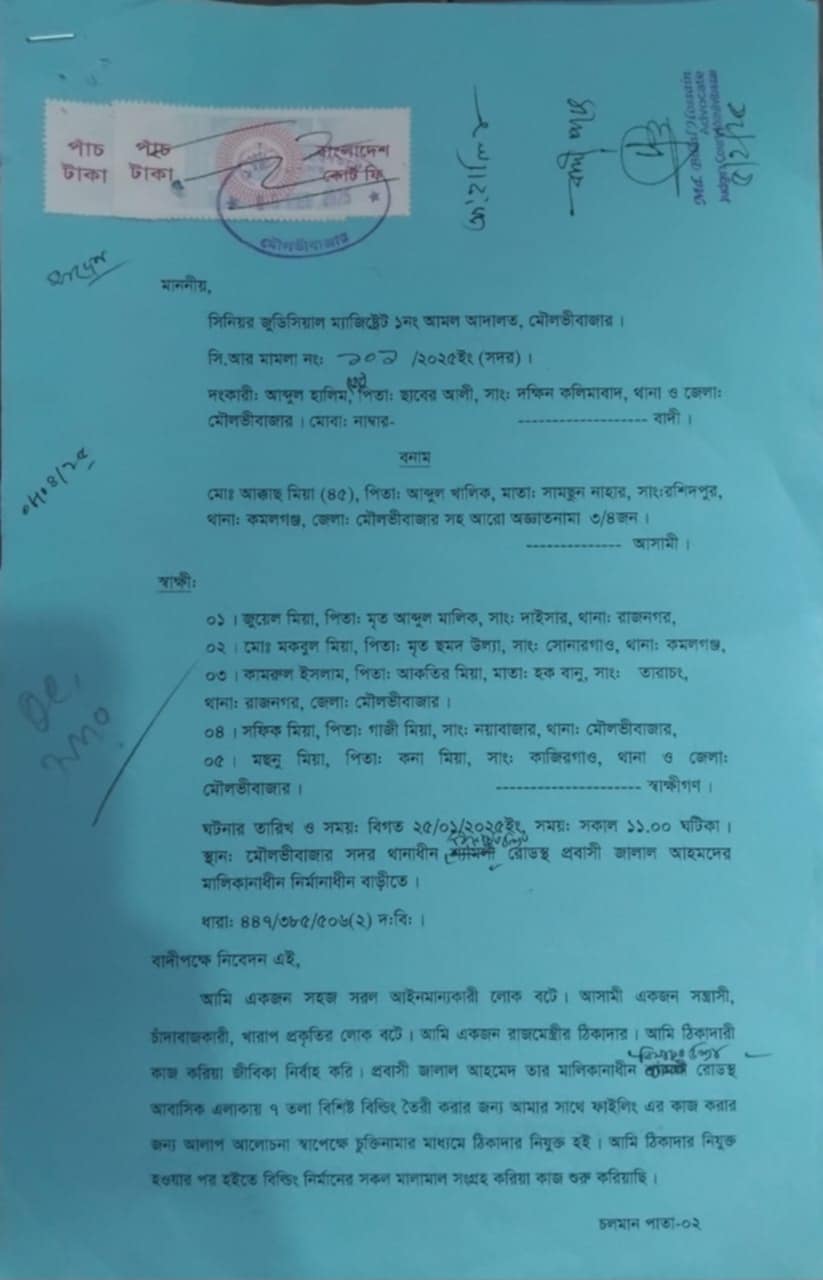 পাঁচ টাকা
পাঁচ টাকা
বাংলাদেশ
কোর্ট ফি
মৌলভীবাজার
Advocate
মাননীয়,
সিনিয়র জুডিসিয়াল ম্যাজিষ্ট্রেট ১নং আমল আদালত, মৌলভীবাজার।
সি.আর মামলা নং: ১০১ /২০২৫ইং (সদর)।
দংকারী: আব্দুল হালিম, পিতা: ছাবের আলী, সাং: দক্ষিন কলিমাবাদ, থানা ও জেলা:
মৌলভীবাজার। মোবা: নাম্বার- -------------------- বাদী।
বনাম
মোঃ আক্কাছ মিয়া (৪৫), পিতা: আব্দুল খালিক, মাতা: সামছুন নাহার, সাং:রশিদপুর,
থানা: কমলগঞ্জ, জেলা: মৌলভীবাজার সহ আরো অজ্ঞাতনামা ৩/৪জন।
--------------- আসামী।
স্বাক্ষী:
০১। জুয়েল মিয়া, পিতা: মৃত আব্দুল মালিক, সাং: দাইসার, থানা: রাজনগর,
০২। মোঃ মকবুল মিয়া, পিতা: মৃত ছমদ উল্যা, সাং: সোনারগাও, থানা: কমলগঞ্জ,
০৩। কামরুল ইসলাম, পিতা: আকতির মিয়া, মাতা: হক বানু, সাং: তারাচং,
থানা: রাজনগর, জেলা: মৌলভীবাজার।
০৪। সফিক মিয়া, পিতা: গাজী মিয়া, সাং: নয়াবাজার, থানা: মৌলভীবাজার,
০৫। মছনু মিয়া, পিতা: কনা মিয়া, সাং: কাজিরগাও, থানা ও জেলা:
মৌলভীবাজার। ----------------------- স্বাক্ষীগণ।
ঘটনার তারিখ ও সময়: বিগত ২৫/০১/২০২৫ইং, সময়: সকাল ১১.০০ ঘটিকা।
স্থান: মৌলভীবাজার সদর থানাধীন শ্যামলী রোডস্থ প্রবাসী জালাল আহমদের
মালিকানাধীন নির্মানাধীন বাড়ীতে।
ধারা: ৪৪৭/৩৮৫/৫০৬(২) দ:বি:।
বাদীপক্ষে নিবেদন এই,
আমি একজন সহজ সরল আইনমান্যকারী লোক বটে। আসামী একজন সন্ত্রাসী,
চাঁদাবাজকারী, খারাপ প্রকৃতির লোক বটে। আমি একজন রাজমেস্ত্রীর ঠিকাদার। আমি ঠিকাদারী
কাজ করিয়া জীবিকা নির্বাহ করি। প্রবাসী জালাল আহমেদ তার মালিকানাধীন রোডস্থ
আবাসিক এলাকায় ৭ তলা বিশিষ্ট বিল্ডিং তৈরী করার জন্য আমার সাথে ফাইলিং এর কাজ করার
জন্য আলাপ আলোচনা স্বাপেক্ষে চুক্তিনামার মাধ্যমে ঠিকাদার নিযুক্ত হই। আমি ঠিকাদার নিযুক্ত
হওয়ার পর হইতে বিল্ডিং নির্মানের সকল মালামাল সংগ্রহ করিয়া কাজ শুরু করিয়াছি।
চলমান পাতা-০২